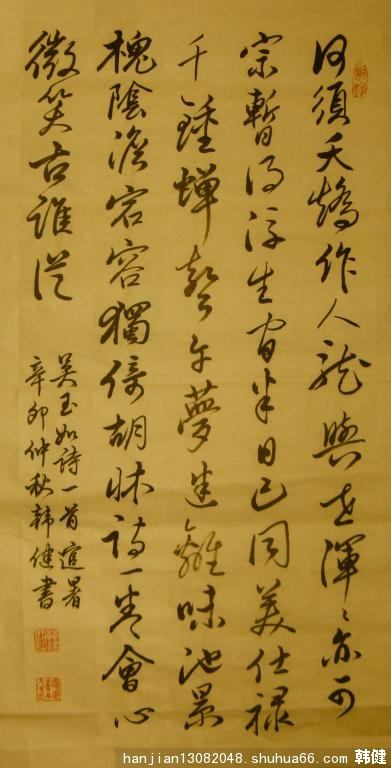 何須夭矯作人龍與世渾渾亦可
宗暫得浮生閒半日已同美仕禄
千鍾蝉聲午夢迷離味池景
槐陰澹宕容獨倚胡床詩一卷會心
微笑古誰從
吳玉如詩一首逭暑
辛卯仲秋韓健書
hanjian13082048.shuhua66.com 韩健